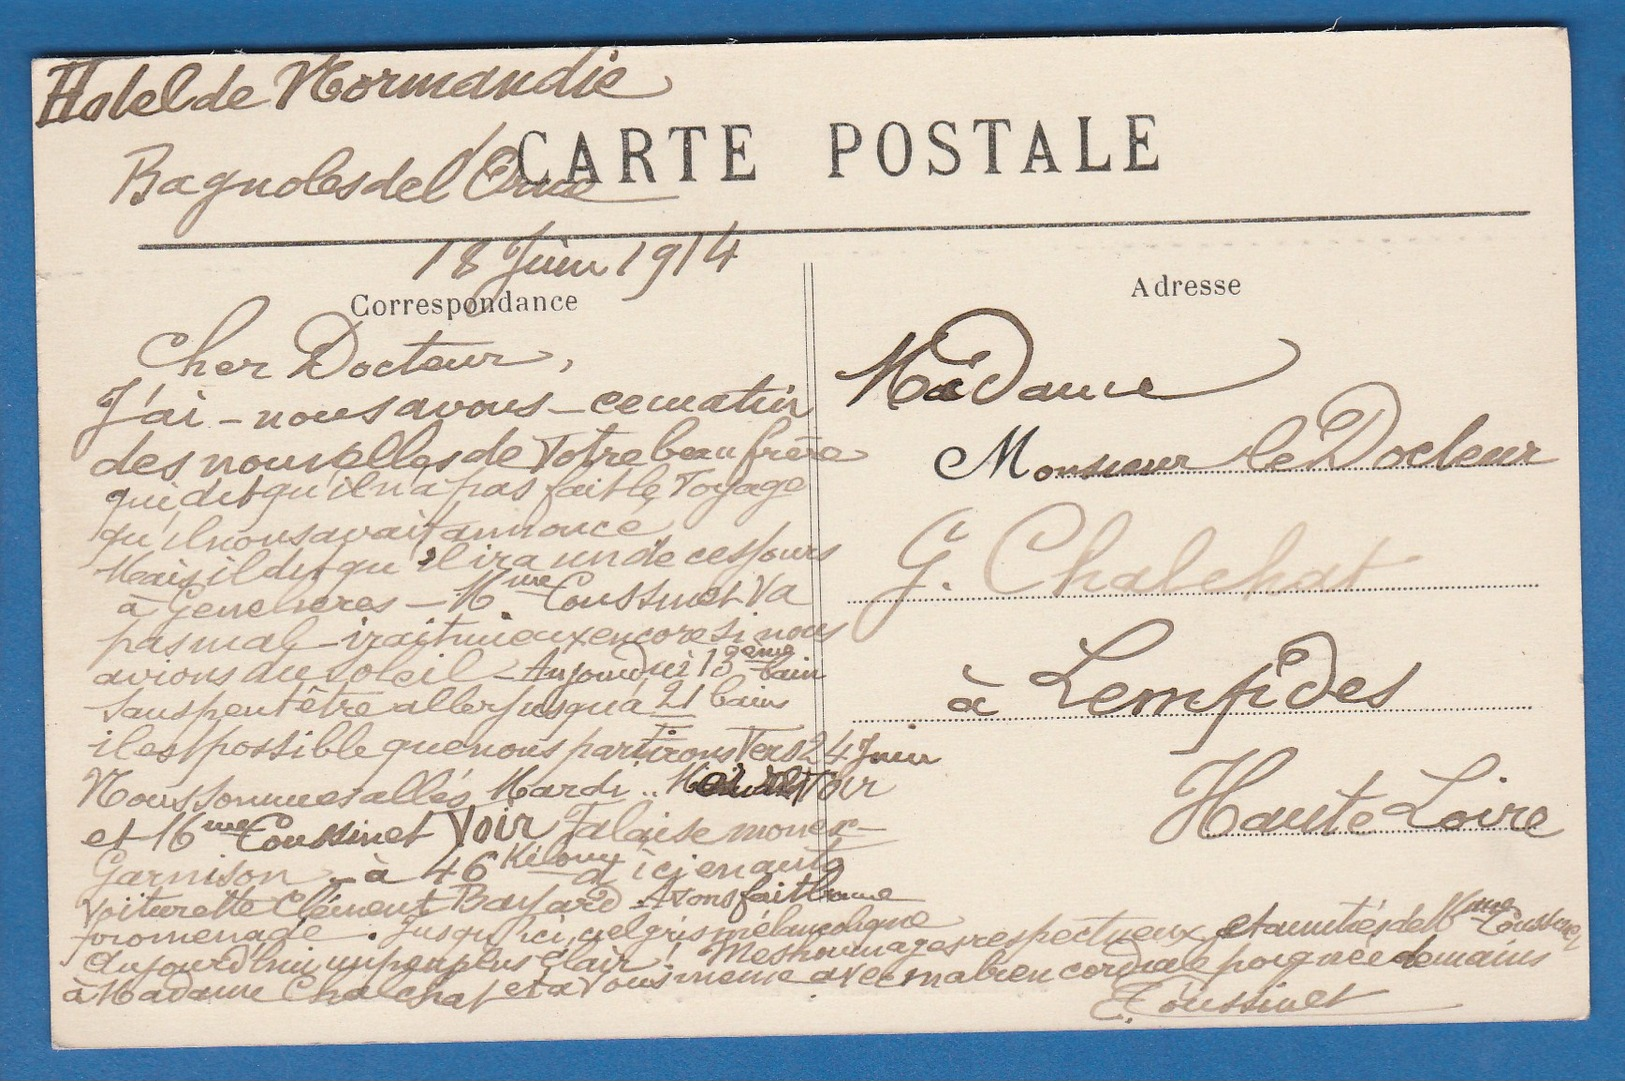 Hotel de Normandie
Bagnoles de l'Orne
CARTE POSTALE
18 Juin 1914
Correspondance
Cher Docteur,
J'ai - nous avons - ce matin
des nouvelles de votre beau frère
qui dit qu'il n'a pas fait le voyage
qu'il nous avait annoncé
Mais il dit qu'il ira un de ces jours
à - Mme Coussinet va
pas mal - irait mieux encore si nous
avions du soleil - Aujourd'ui 13ème bain
sans peut être aller jusqu'à 21 bains
il est possible que nous partirons vers 24 Juin
Nous sommes allés Mardi .. voir
et Mme Coussinet voir Falaise mon ex-
Garnison - à 46 Kilom d'ici en auto
voiturette Clément Bayard - Avons fait bonne
promenade . Jusqu'ici, ciel gris mélancolique
Aujourd'hui, un peu plus clair ! Mes hommages respectueux et amitiés de Mme Coussinet
à Madame Chalchat et à vous même avec ma bien cordiale poignée de mains
E. Coussinet
Adresse
Madame
Monsieur le Docteur
G. Chalchat
à Lempdes
Haute Loire